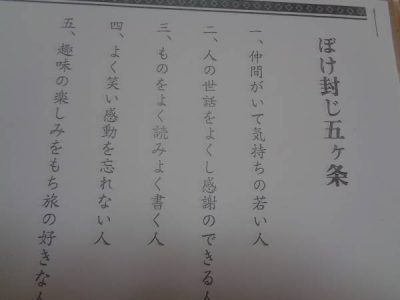 ぼけ封じ五ヶ条
一、仲間がいて気持ちの若い人
二、人の世話をよくし感謝のできる人
三、ものをよく読みよく書く人
四、よく笑い感動を忘れない人
五、趣味の楽しみをもち旅の好きな人